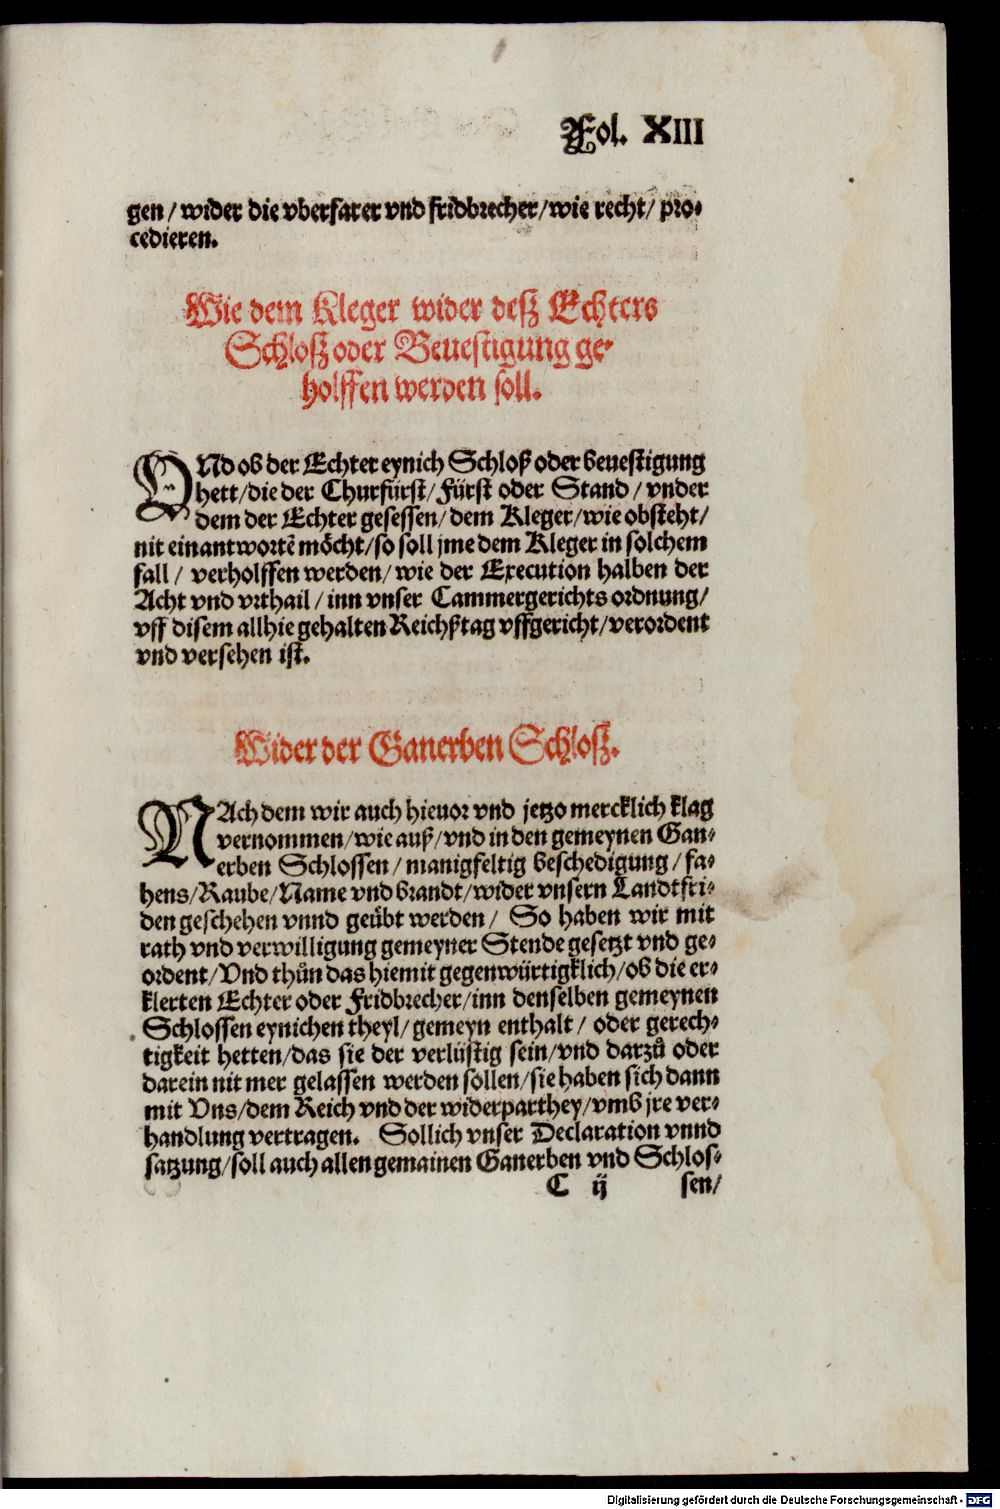 Fol. XIII
gen / wider die vberfarer vnd fridbrecher / wie recht / pro⸗
cedieren.
Wie dem Kleger wider deß Echters
Schloß oder Beuestigung ge⸗
holffen werden soll.
VNd ob der Echter eynich Schloß oder beuestigung
hett / die der Churfürst / Fürst oder Stand / vnder
dem der Echter gesessen / dem Kleger / wie obsteht /
nit einantwortẽ möcht / so soll jme dem Kleger in solchem
fall / verholffen werden / wie der Execution halben der
Acht vnd vrthail / inn vnser Cammergerichts ordnung /
vff disem allhie gehalten Reichßtag vffgericht / verordent
vnd versehen ist.
Wider der Ganerben Schloß.
NAch dem wir auch hieuor vnd jetzo mercklich klag
vernommen / wie auß / vnd in den gemeynen Gan⸗
erben Schlossen / manigfeltig beschedigung / fa⸗
hens / Raube / Name vnd brandt / wider vnsern Landtfri⸗
den geschehen vnnd geübt werden / So haben wir mit
rath vnd verwilligung gemeyner Stende gesetzt vnd ge⸗
ordent / Vnd thůn das hiemit gegenwürtigklich / ob die er⸗
klerten Echter oder Fridbrecher / inn denselben gemeynen
Schlossen eynichen theyl / gemeyn enthalt / oder gerech⸗
tigkeit hetten / das sie der verlüstig sein / vnd darzů oder
darein nit mer gelassen werden sollen / sie haben sich dann
mit Vns / dem Reich vnd der widerparthey / vmb jre ver⸗
handlung vertragen. Sollich vnser Declaration vnnd
satzung / soll auch allen gemainen Ganerben vnd Schlos⸗
C ij sen /
Digitalisierung gefördert durch die Deutsche Forschungsgemeinschaft - DFG